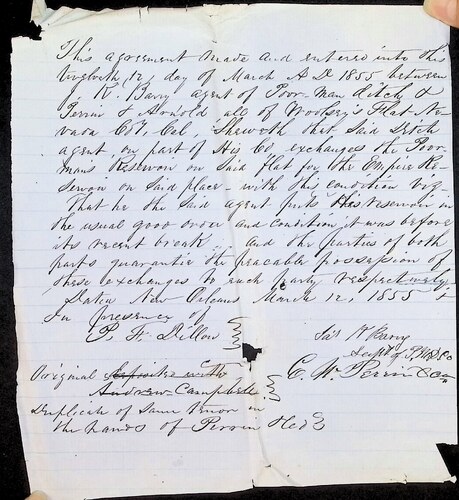 This agreement made and entered into this
twelveth, 12, day of March A D 1855 between
K. Barry agent of Poor-man ditch &
Perrin & Arnold all of Woolsey's Flat Ne-
vada Coty, Cal, Sheweth that said Ditch
agent, on part of His Co exchanges the Poor
mans Reservon on said flat for the Empire Re-
servon on said place with this condition viz
That he the said agent puts His reservoir in
the usual good order and condition it was before
its recent break. and the parties of both
parts guarantie the peacable possession of
these exchanges to each party respectively.
Dated New Orleans March 12, 1855
In presence of
P. H. Dillon
Jas K Barry
Supt of P. M. D. Co
C. W. Perrin & Co
Original deposited with
Andrew Campbell
Duplicate of same tenor in
the hands of Perrin